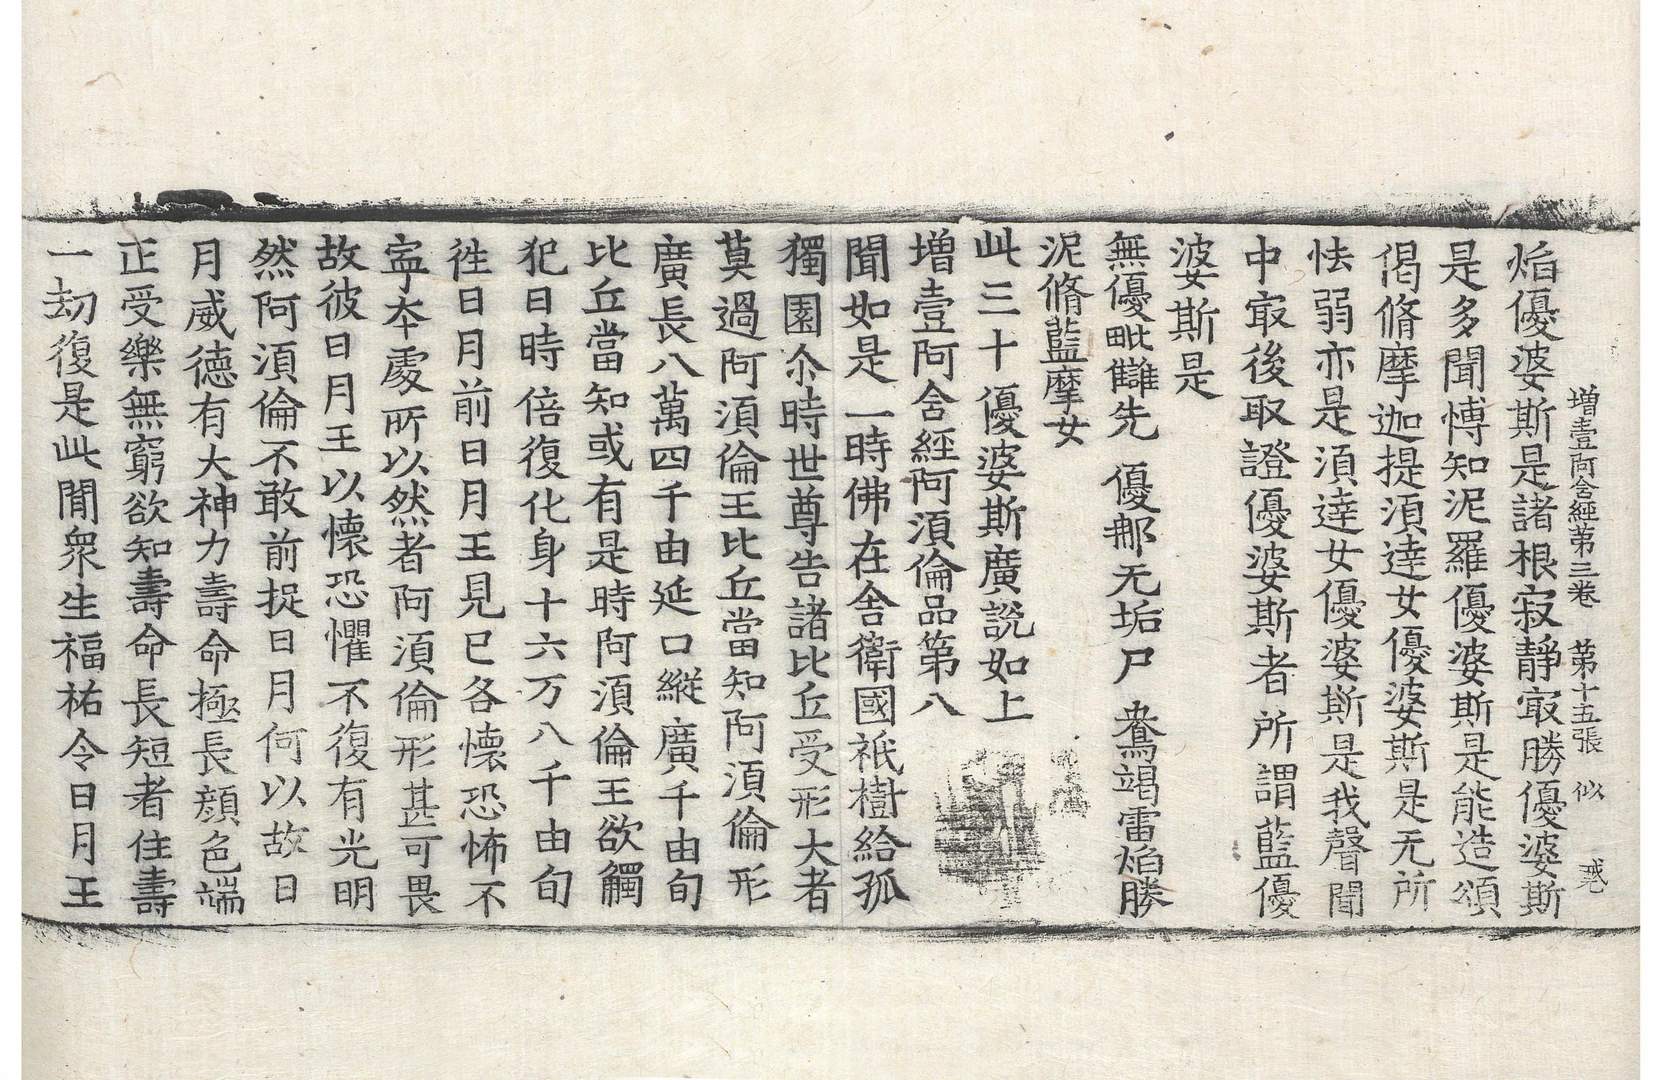 增壹阿含經苐三卷 苐十五張 似 戒
焰優婆斯是諸根寂静㝡勝優婆斯
是多聞愽知泥羅優婆斯是能造頌
偈脩摩迦提湏逹女優婆斯是无所
怯弱亦是湏逹女優婆斯是我聲聞
中㝡後取證優婆斯者所謂藍優
婆斯是
無優毗讎先 優那无垢尸 鴦竭雷焰勝
泥脩藍摩女
此三十優婆斯廣說如上
增壹阿含經阿湏倫品第八
聞如是一時佛在舍衛國祇樹給孤
獨園尒時世尊告諸比丘受形大者
莫過阿湏倫王比丘當知阿湏倫形
廣長八萬四千由延口縱廣千由旬
比丘當知或有是時阿湏倫王欲觸
犯日時倍復化身十六万八千由旬
徃日月前日月王見已各懷恐怖不
寧夲處所以然者阿湏倫形甚可畏
故彼日月王以懷恐懼不復有光明
然阿湏倫不敢前捉日月何以故日
月威德有大神力壽命極長顔色端
正受樂無窮欲知壽命長短者住壽
一劫復是此間衆生福祐令日月王